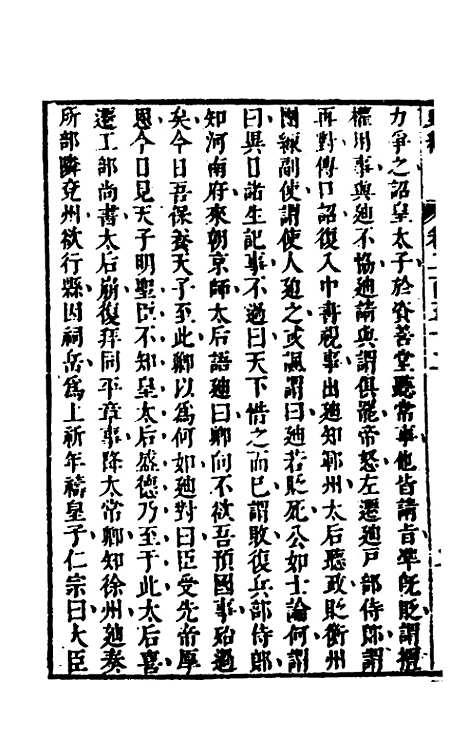 力爭之詔皇太子於資善堂聽常事他皆請旨準旣貶謂擅
權用事與廸不協廸請與謂俱罷帝怒左遷廸戸部侍郎謂
再對傳口詔復入中書視事出廸知鄆州太后聽政貶衡州
團練副使謂使人廹之或諷謂曰廸若貶死公如士論何謂
曰異日諸生記事不過曰天下惜之而已謂敗復兵部侍郎
知河南府來朝京師太后語廸曰卿向不欲吾預國事殆過
矣今日吾保養天子至此卿以爲何如廸對曰臣受先帝厚
恩今日見天子明聖臣不知皇太后盛德乃至于此太后喜
遷工部尚書太后崩復拜同平章事降太常卿知徐州廸奏
所部隣兖州欲行縣因祠岳爲上祈年禱皇子仁宗曰大臣